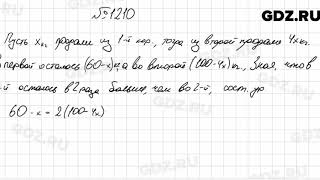 GDZ.RU
№1210
Пусть x кг продали из 1-й кор., тогда из второй продали 4x кг.
В первой осталось (60-x) кг, а во второй (100-4x) кг. Зная, что в
1-й осталось в 2 раза больше, чем во 2-й, сост. ур
60-x=2(100-4x)
GDZ.RU